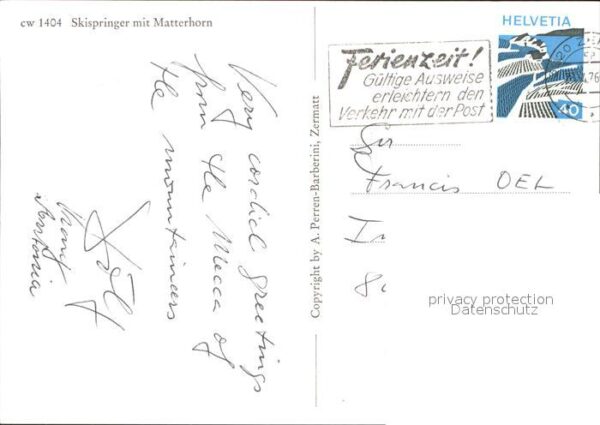 cw 1404 Skispringer mit Matterhorn
Very cordial greetings
from the Mecca of
the mountaineers
Copyright by A. Perren-Barberini, Zermatt
Ferienzeit!
Gültige Ausweise
erleichtern den
Verkehr mit der Post
HELVETIA
40
Francis OEL
privacy protection
Datenschutz